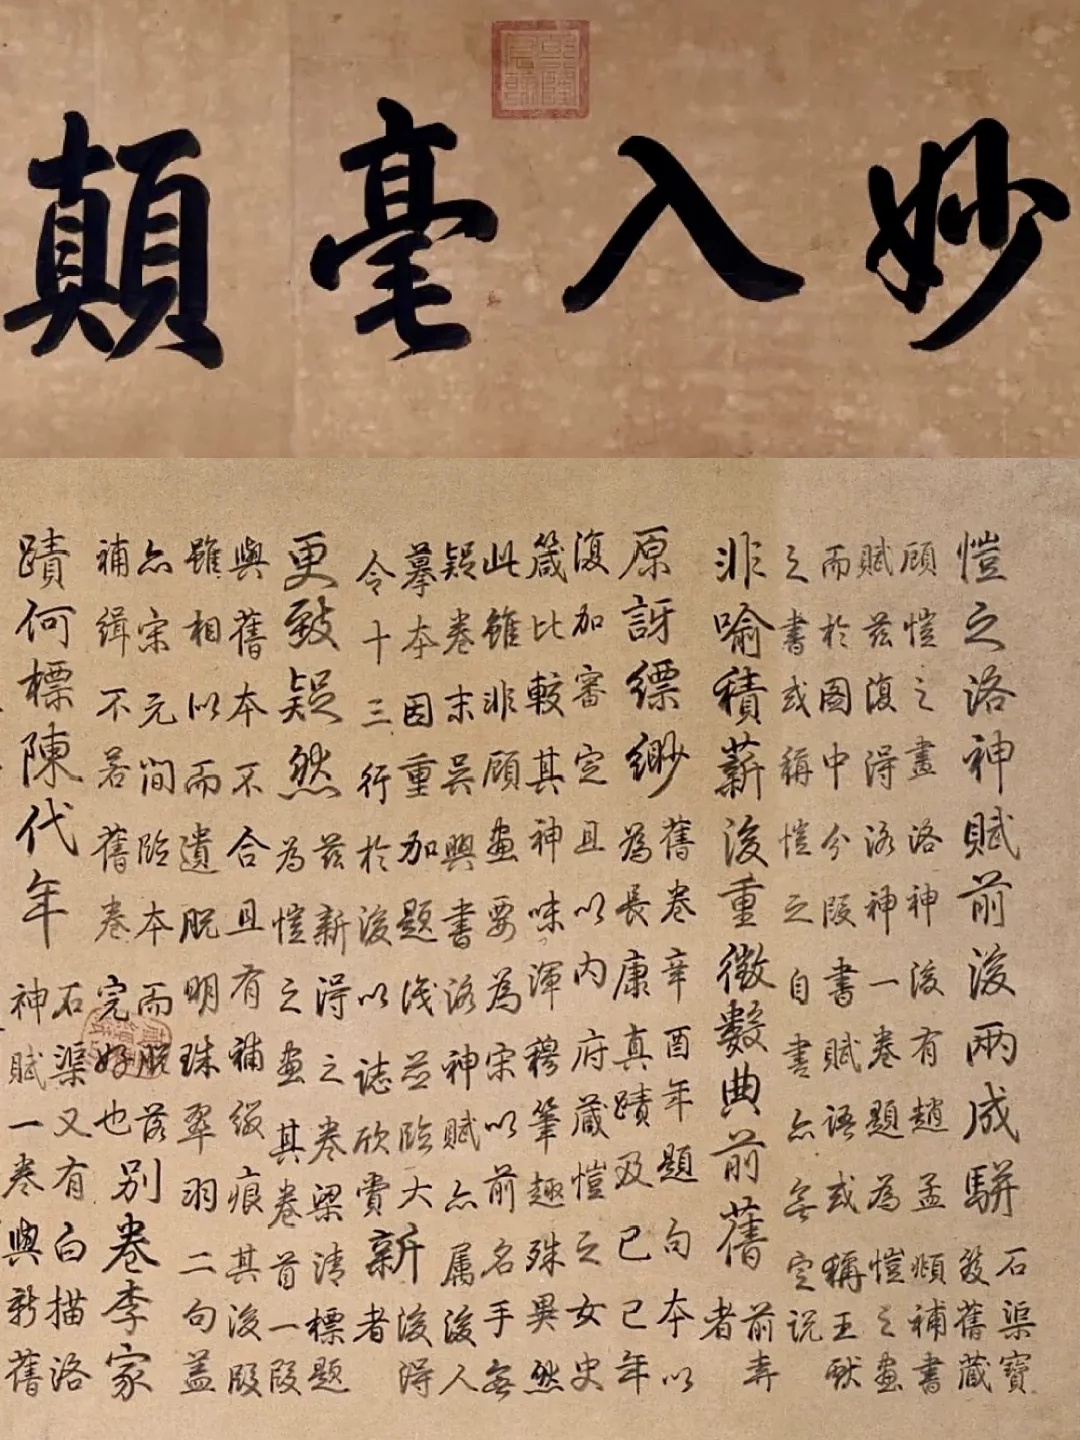 妙入毫顛
乾隆宸翰
愷之洛神賦前後兩成駢
石渠寶
笈舊藏
顧愷之畫洛神後有趙孟頫補書
賦茲復得洛神一卷題為愷之畫
而於圖中分段書賦語或稱王獻
之書或稱愷之自書亦無定說
非喻積薪後重徵數典前舊
前弆
者
原訝縹緲
舊卷辛酉年題句本以
為長康真蹟及己巳年
復加審定且以內府藏愷之女史
箴比較其神味渾穆筆趣殊異然
此雖非顧畫要為宋以前名手無
疑卷末吳興書洛神賦亦屬後人
摹本因重加題識並臨大
令十三行於後以誌欣賞
新
後得
者
更致疑然
茲新得之卷梁清標題
為愷之畫其卷首一段
與舊本不合且有補綴痕其後段
雖相以而遺脫明珠翠羽二句蓋
亦宋元間臨本而脫落
補緝不若舊卷完好也
別卷李家
蹟何標陳代年
石渠又有白描洛
神賦一卷與新舊